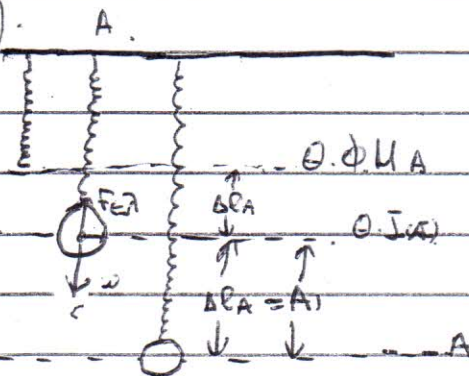 ). A.
Θ.Φ.Μ Α
Fελ
Δℓ_A
Θ.Ι.(Α)
Δℓ_A = A₁
A